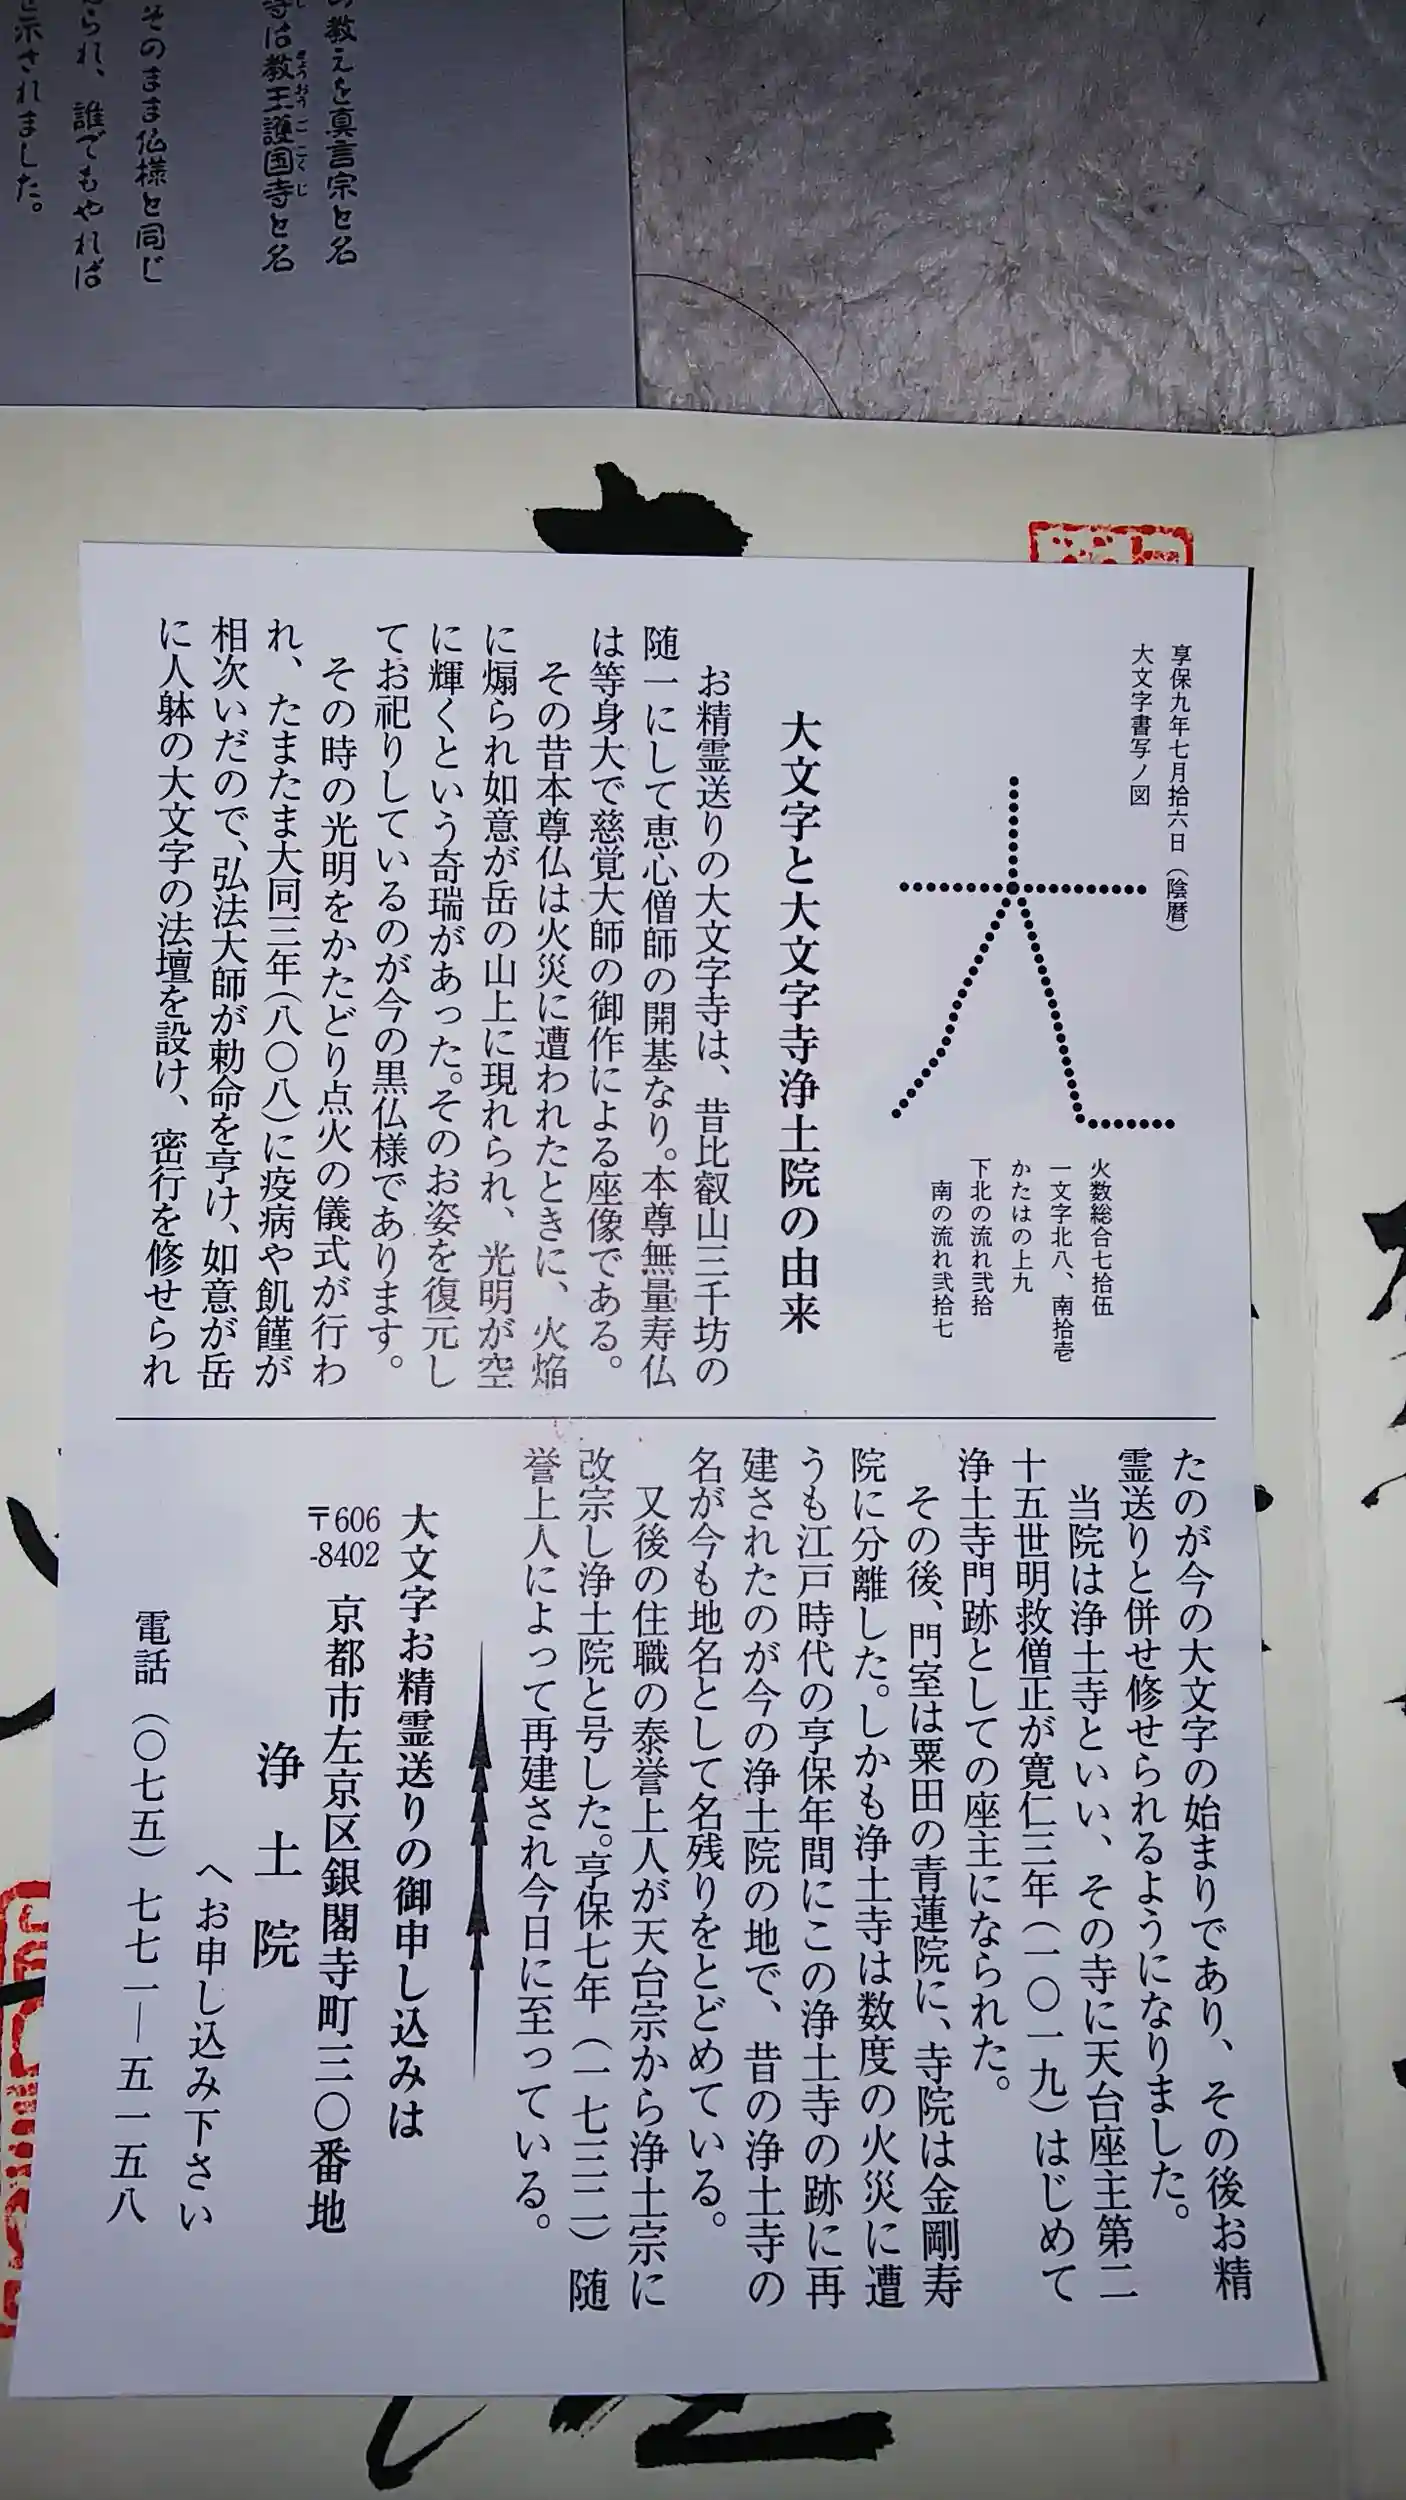 の教えを真言宗と名
寺は教王護国寺と名
きょうおうごこくじ
そのまま仏様と同じ
られ、誰でもやれば
示されました。
享保九年七月拾六日（陰暦）
大文字書写ノ図
火数総合七拾伍
一文字北八、南拾壱
かたはの上九
下北の流れ弐拾
南の流れ弐拾七
大文字と大文字寺浄土院の由来
お精霊送りの大文字寺は、昔比叡山三千坊の
随一にして恵心僧師の開基なり。本尊無量寿仏
は等身大で慈覚大師の御作による座像である。
その昔本尊仏は火災に遭われたときに、火焔
に煽られ如意が岳の山上に現れられ、光明が空
に輝くという奇瑞があった。そのお姿を復元し
てお祀りしているのが今の黒仏様であります。
その時の光明をかたどり点火の儀式が行わ
れ、たまたま大同三年（八〇八）に疫病や飢饉が
相次いだので、弘法大師が勅命を亨け、如意が岳
に人躰の大文字の法壇を設け、密行を修せられ
たのが今の大文字の始まりであり、その後お精
霊送りと併せ修せられるようになりました。
当院は浄土寺といい、その寺に天台座主第二
十五世明救僧正が寛仁三年（一〇一九）はじめて
浄土寺門跡としての座主になられた。
その後、門室は粟田の青蓮院に、寺院は金剛寿
院に分離した。しかも浄土寺は数度の火災に遭
うも江戸時代の亨保年間にこの浄土寺の跡に再
建されたのが今の浄土院の地で、昔の浄土寺の
名が今も地名として名残りをとどめている。
又後の住職の泰誉上人が天台宗から浄土宗に
改宗し浄土院と号した。亨保七年（一七三二）随
誉上人によって再建され今日に至っている。
大文字お精霊送りの御申し込みは
〒606-8402 京都市左京区銀閣寺町三〇番地
浄土院
へお申し込み下さい
電話（〇七五）七七一―五一五八